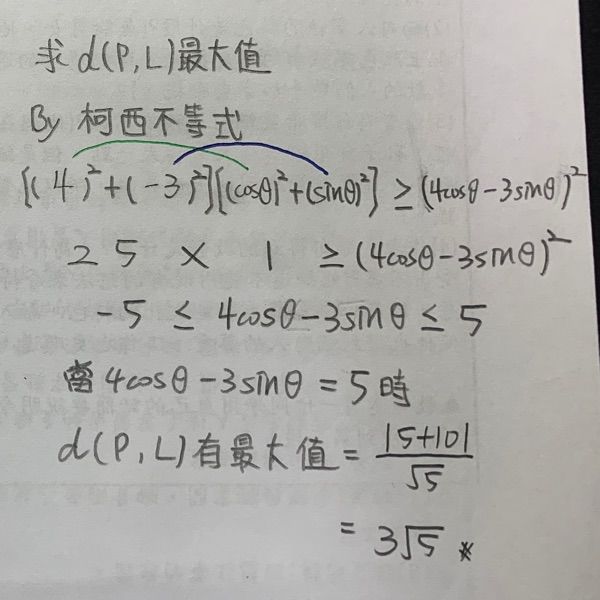 求 d(P,L)最大值
By 柯西不等式
[(4)²+(-3)²][(cosθ)²+(sinθ)²] ≥ (4cosθ-3sinθ)²
25 × 1 ≥ (4cosθ-3sinθ)²
-5 ≤ 4cosθ-3sinθ ≤ 5
當 4cosθ-3sinθ = 5 時
d(P,L)有最大值 = |5+10|/√5
= 3√5 ※